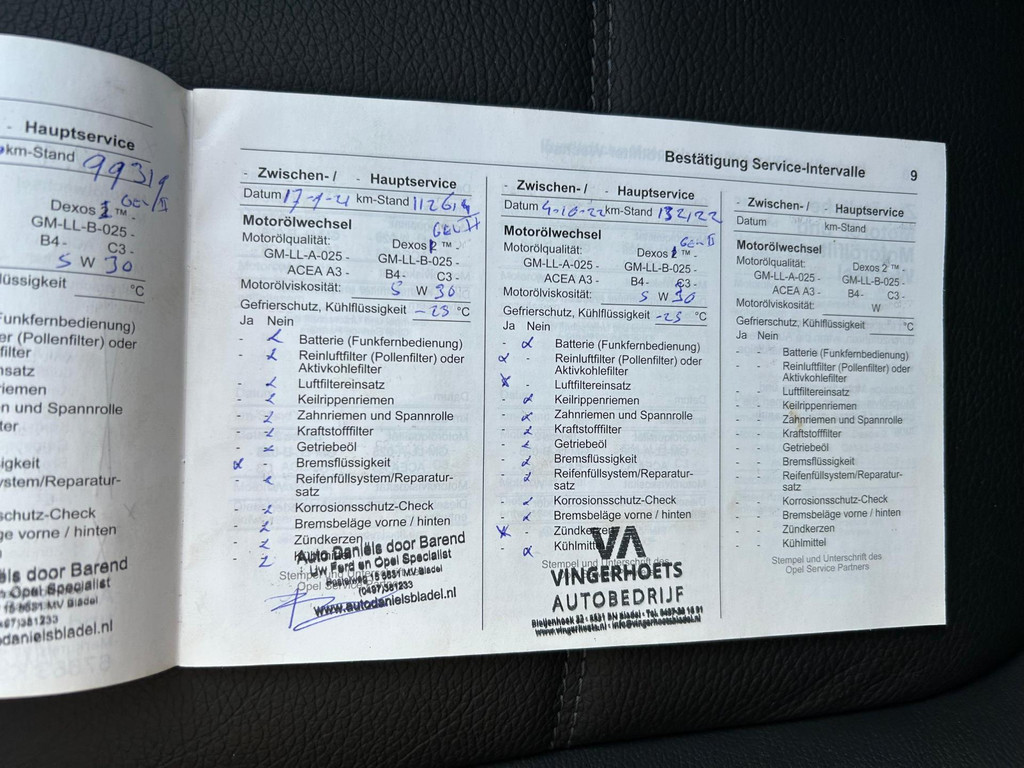 - Hauptservice
km-Stand 99319
Gen II
Dexos 1 ™ -
GM-LL-B-025 -
B4 - C3 -
5 W 30
lüssigkeit °C
Funkfernbedienung)
er (Pollenfilter) oder
filter
nsatz
riemen
n und Spannrolle
ter
igkeit
ystem/Reparatur-
schutz-Check
ge vorne / hinten
els door Barend
n Opel Specialist
15 5531 MV Bladel
497)381233
danielsbladel.nl
Bestätigung Service-Intervalle 9
- Zwischen- / - Hauptservice
Datum km-Stand
Gen II
Motorölwechsel
Motorölqualität: Dexos ™ -
GM-LL-A-025 - GM-LL-B-025 -
ACEA A3 - B4 - C3 -
Motorölviskosität: 5 W 30
Gefrierschutz, Kühlflüssigkeit -25 °C
Ja Nein
Batterie (Funkfernbedienung)
Reinluftfilter (Pollenfilter) oder
Aktivkohlefilter
Luftfiltereinsatz
Keilrippenriemen
Zahnriemen und Spannrolle
Kraftstofffilter
Getriebeöl
Bremsflüssigkeit
Reifenfüllsystem/Reparatur-
satz
Korrosionsschutz-Check
Bremsbeläge vorne / hinten
Zündkerzen
Auto Daniëls door Barend
Uw Ford en Opel Specialist
(0497)381233
www.autodanielsbladel.nl
- Zwischen- / - Hauptservice
Datum 4-10-22 km-Stand 132122
Gen II
Motorölwechsel
Motorölqualität: Dexos 1 ™ -
GM-LL-A-025 - GM-LL-B-025 -
ACEA A3 - B4 - C3 -
Motorölviskosität: 5 W 30
Gefrierschutz, Kühlflüssigkeit -25 °C
Ja Nein
Batterie (Funkfernbedienung)
Reinluftfilter (Pollenfilter) oder
Aktivkohlefilter
Luftfiltereinsatz
Keilrippenriemen
Zahnriemen und Spannrolle
Kraftstofffilter
Getriebeöl
Bremsflüssigkeit
Reifenfüllsystem/Reparatur-
satz
Korrosionsschutz-Check
Bremsbeläge vorne / hinten
Zündkerzen
Kühlmittel
VA
Stempel und Unterschrift des
VINGERHOETS
AUTOBEDRIJF
www.vingerhoets.nl - info@vingerhoetsbladel.nl
- Zwischen- / - Hauptservice
Datum km-Stand
Motorölwechsel
Motorölqualität: Dexos 2 ™ -
GM-LL-A-025 - GM-LL-B-025 -
ACEA A3 - B4 - C3 -
Motorölviskosität: W
Gefrierschutz, Kühlflüssigkeit °C
Ja Nein
- - Batterie (Funkfernbedienung)
- - Reinluftfilter (Pollenfilter) oder
Aktivkohlefilter
- - Luftfiltereinsatz
- - Keilrippenriemen
- - Zahnriemen und Spannrolle
- - Kraftstofffilter
- - Getriebeöl
- - Bremsflüssigkeit
- - Reifenfüllsystem/Reparatur-
satz
- - Korrosionsschutz-Check
- - Bremsbeläge vorne / hinten
- - Zündkerzen
- - Kühlmittel
Stempel und Unterschrift des
Opel Service Partners